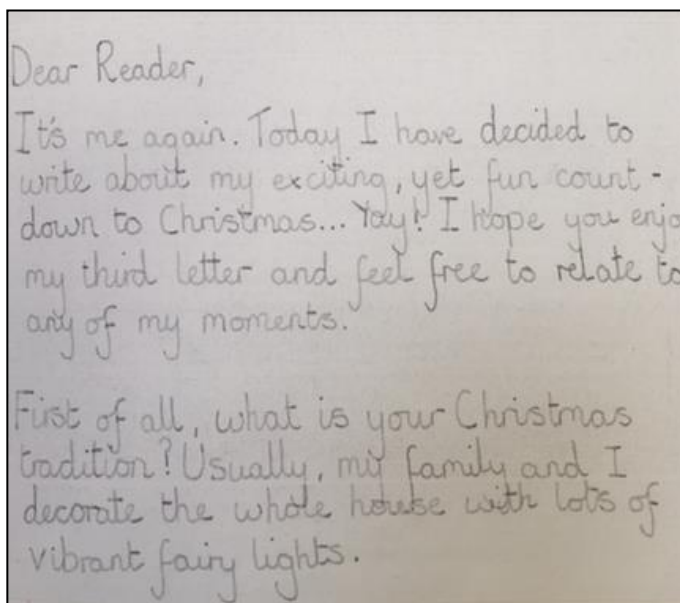 Dear Reader,
It's me again. Today I have decided to
write about my exciting, yet fun count-
down to Christmas... Yay! I hope you enjo
my third letter and feel free to relate to
any of my moments.
First of all, what is your Christmas
tradition? Usually, my family and I
decorate the whole house with lots of
vibrant fairy lights.